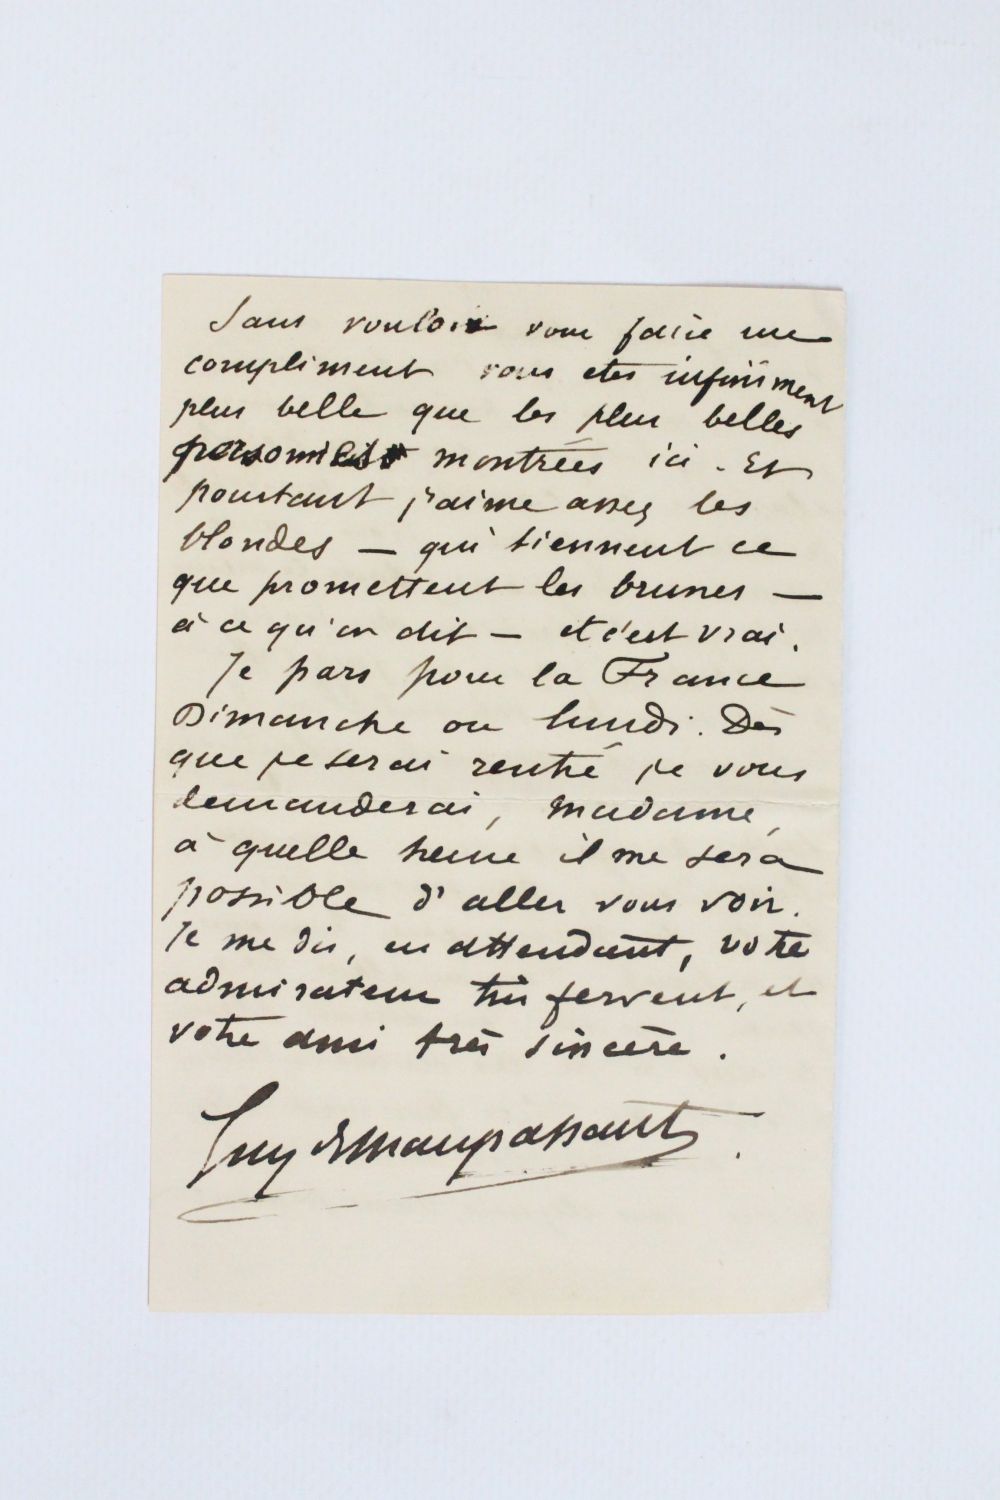 Sans vouloir vous faire un
compliment vous etes infiniment
plus belle que les plus belles
personnes montrées ici. Et
pourtant j'aime assez les
blondes — qui tiennent ce
que promettent les brunes —
à ce qu'on dit — et c'est vrai.
Je pars pour la France
Dimanche ou lundi. Dès
que je serai rentré je vous
demanderai, madame,
à quelle heure il me sera
possible d'aller vous voir.
Je me dis, en attendant, votre
admirateur très fervent, et
votre ami très sincère.
Guy de Maupassant